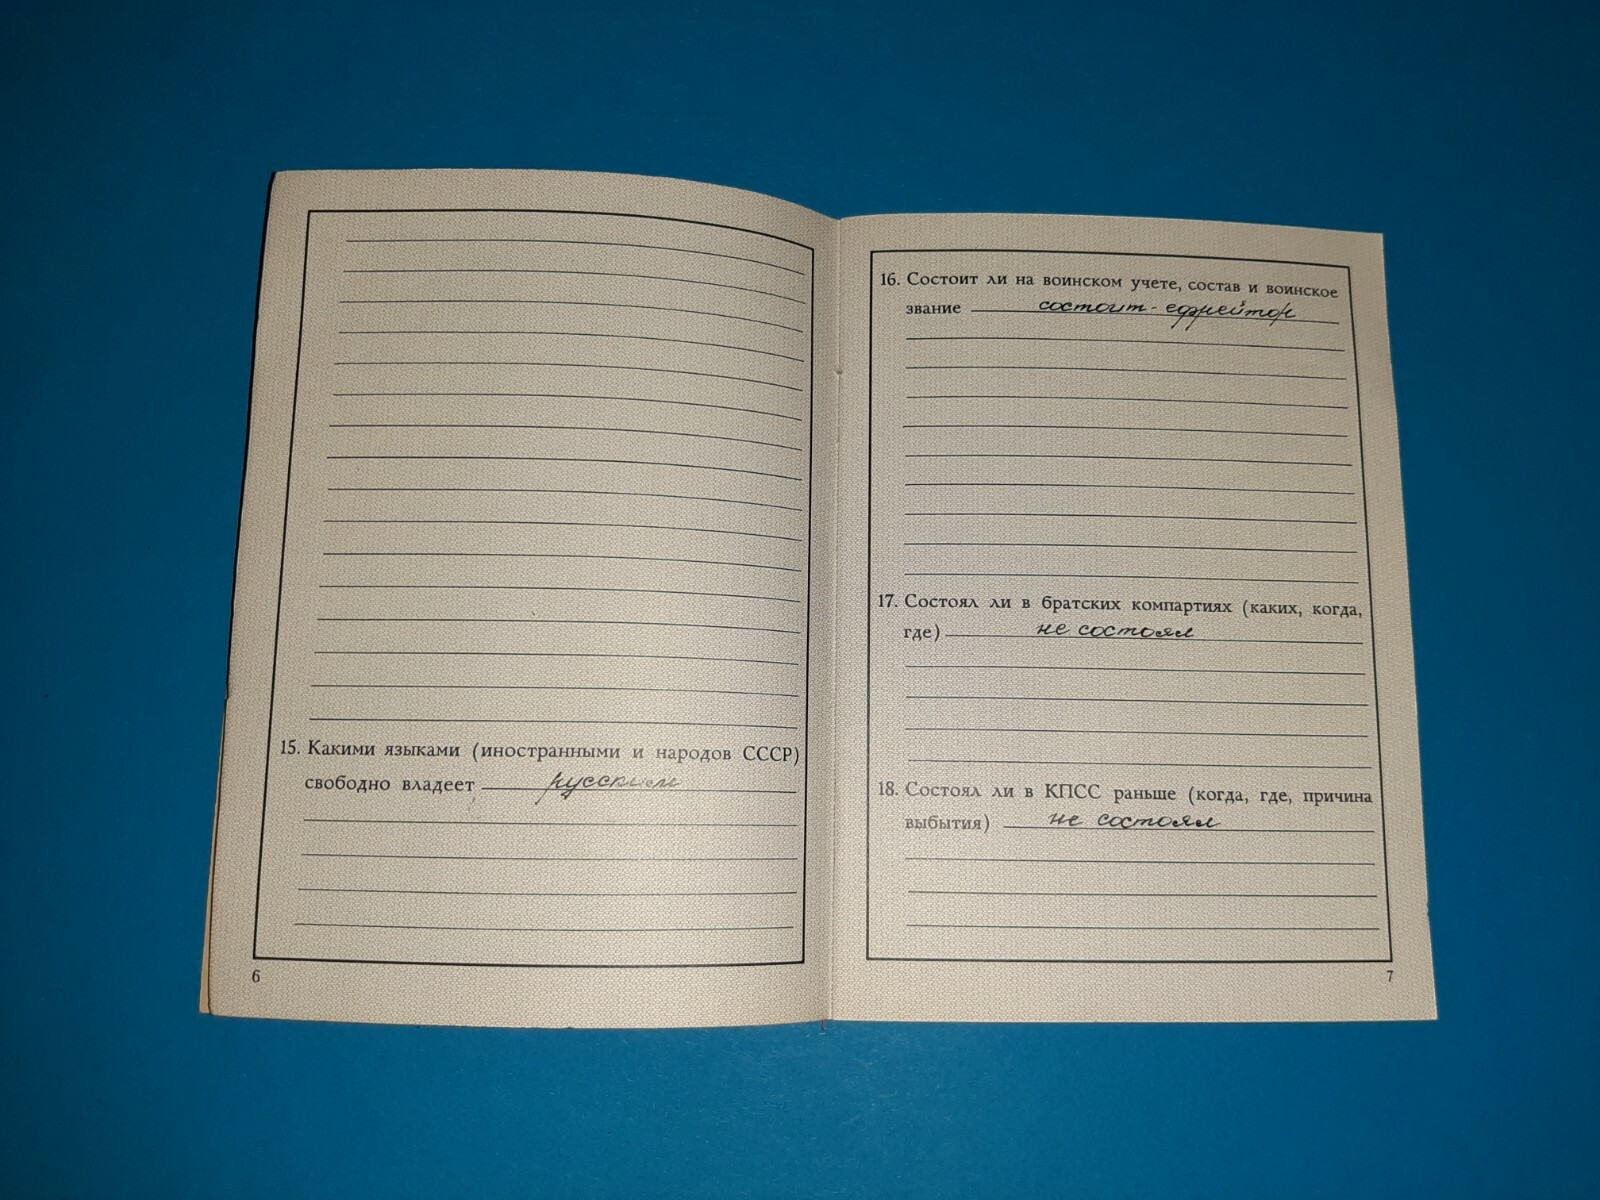 15. Какими языками (иностранными и народов СССР)
свободно владеет русским
6
16. Состоит ли на воинском учете, состав и воинское
звание состоит - ефрейтор
17. Состоял ли в братских компартиях (каких, когда,
где) не состоял
18. Состоял ли в КПСС раньше (когда, где, причина
выбытия) не состоял
7